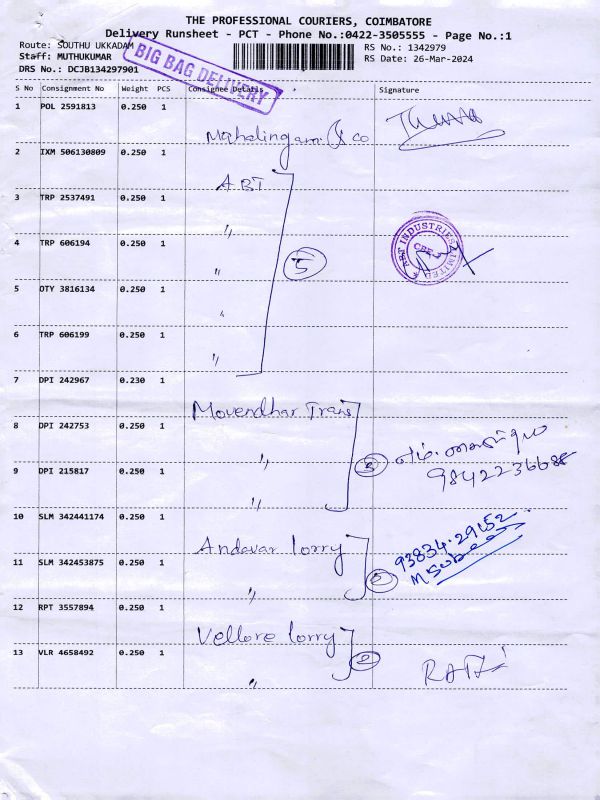 THE PROFESSIONAL COURIERS, COIMBATORE
Delivery Runsheet - PCT - Phone No.:0422-3505555 - Page No.:1
Route: SOUTHU UKKADAM
RS No.: 1342979
Staff: MUTHUKUMAR
RS Date: 26-Mar-2024
DRS No.: DCJB134297901
BIG BAG DELIVERY
S No Consignment No Weight PCS Consignee Details Signature
1 POL 2591813 0.250 1
Mahalingam & co
2 IXM 506130809 0.250 1
ABT
3 TRP 2537491 0.250 1
"
4 TRP 606194 0.250 1
"
5
ABT INDUSTRIES LIMITED
CBE
5 OTY 3816134 0.250 1
"
6 TRP 606199 0.250 1
"
7 DPI 242967 0.230 1
Movendhar Trans
8 DPI 242753 0.250 1
"
3
எம்.
9842223668
9 DPI 215817 0.250 1
"
10 SLM 342441174 0.250 1
Andavar lorry
93834.29152
11 SLM 342453875 0.250 1
"
12 RPT 3557894 0.250 1
Vellore lorry
2
13 VLR 4658492 0.250 1
"